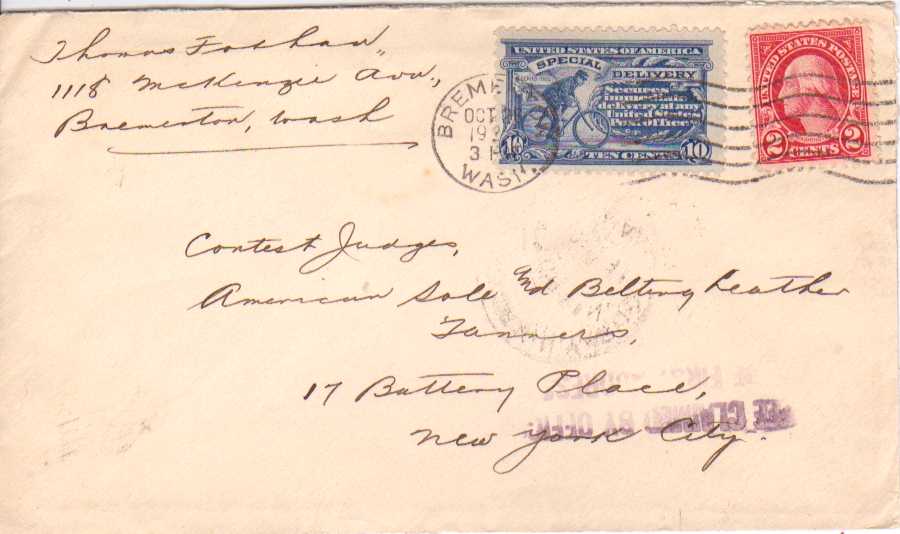 Thomas
1118 McKenzie Ave.,
Bremerton, Wash
UNITED STATES OF AMERICA
SPECIAL DELIVERY
Secures
immediate
delivery at any
United States
Post office
10 TEN CENTS 10
UNITED STATES POSTAGE
2 CENTS 2
OCT
3 P
WASH.
Contest Judges,
American Sole and Belting Leather
Tanners,
17 Battery Place,
New York City.
FEE CLAIMED BY OFFICE